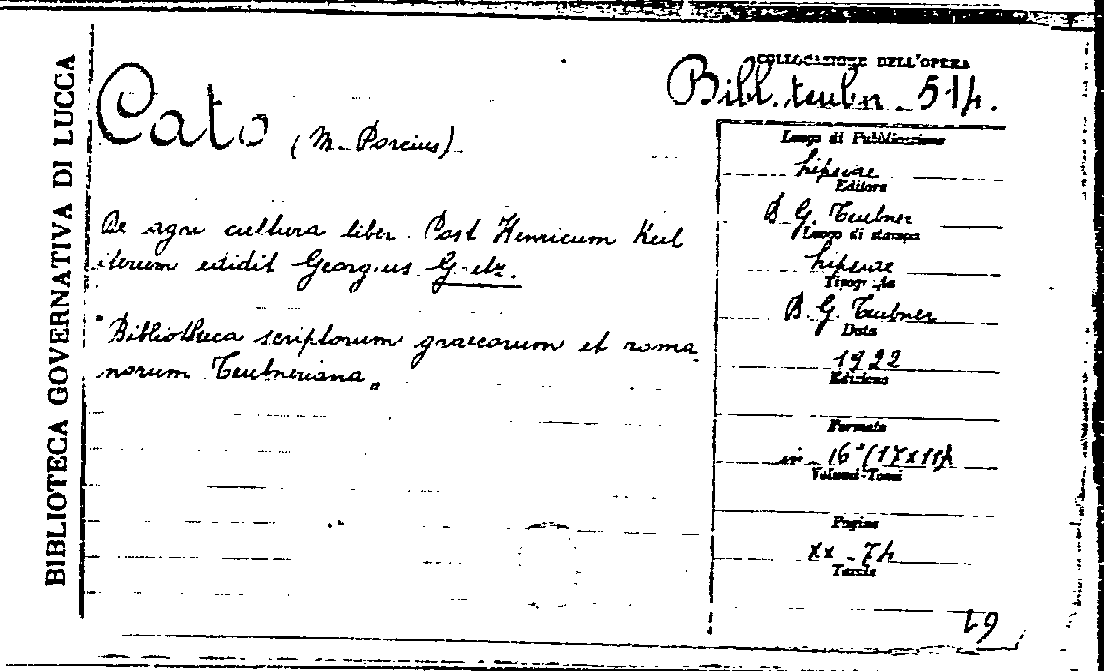 BIBLIOTECA GOVERNATIVA DI LUCCA
COLLOCAZIONE DELL'OPERA
Bibl. teubn. 514.
Cato (M. Porcius)
De agri cultura liber. Post Henricum Keil
iterum edidit Georgius Goetz.
"Bibliotheca scriptorum graecorum et roma-
norum Teubneriana"
Luogo di Pubblicazione
Lipsiae
Editore
B. G. Teubner
Luogo di stampa
Lipsiae
Tipografia
B. G. Teubner
Data
1922
Edizione
Formato
in 16° (17x11)
Volumi-Tomi
Pagine
XX - 74
Tavole